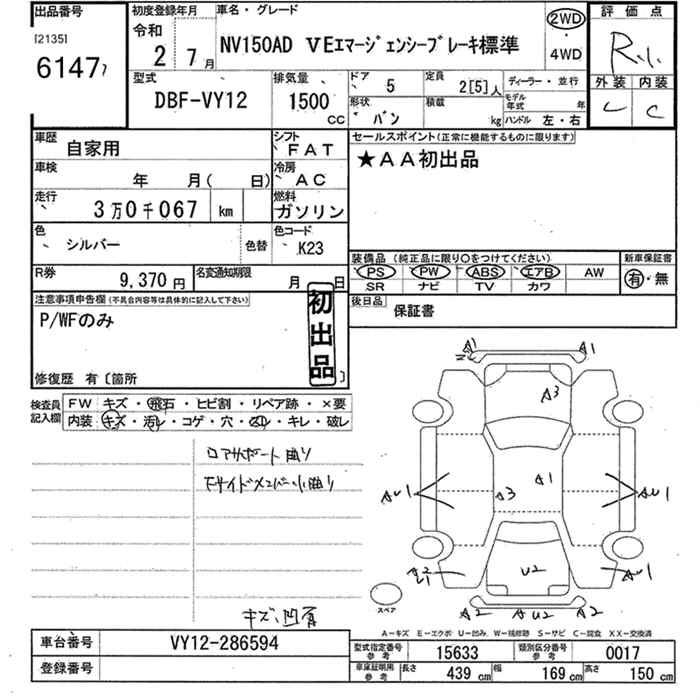 出品番号
[2135]
6147
初度登録年月
令和
2年 7月
車名・グレード
NV150AD VEエマージェンシーブレーキ標準
2WD
・
4WD
評価点
R
外装 内装
C
型式
DBF-VY12
排気量
1500 CC
ドア 5
形状 バン
定員 2[5]人
積載 kg
ディーラー・並行
モデル年式 年
ハンドル 左・右
車歴 自家用
シフト FAT
車検 年 月( 日)
冷房 AC
走行 3万0千067 km
燃料 ガソリン
色 シルバー 色替
色コード K23
R券 9,370円
名変通知期限 月 日
セールスポイント(正常に機能するものに限ります)
★AA初出品
装備品 (純正品に限り○をつけてください)
PS PW ABS エアB AW
SR ナビ TV カワ
新車保証書
有・無
後日品 保証書
注意事項申告欄(不具合内容等は具体的に記入して下さい)
P/WFのみ
初出品
修復歴 有〔箇所 〕
検査員記入欄
FW キズ・飛石・ヒビ割・リペア跡・×要
内装 キズ・汚レ・コゲ・穴・凹レ・キレ・破レ
コアサポート曲り
Fサイドメンバー小曲り
キズ、凹有
A1 A1
A3
A1
A3
AU1 AU1
U2
AU1
A2 AU2 A2
スペア
A-キズ E-エクボ U-凹み W-補修跡 S-サビ C-腐食 XX-交換済
車台番号 VY12-286594
登録番号
型式指定番号 参考 15633
類別区分番号 参考 0017
車庫証明用 参考 長さ 439 cm 幅 169 cm 高さ 150 cm